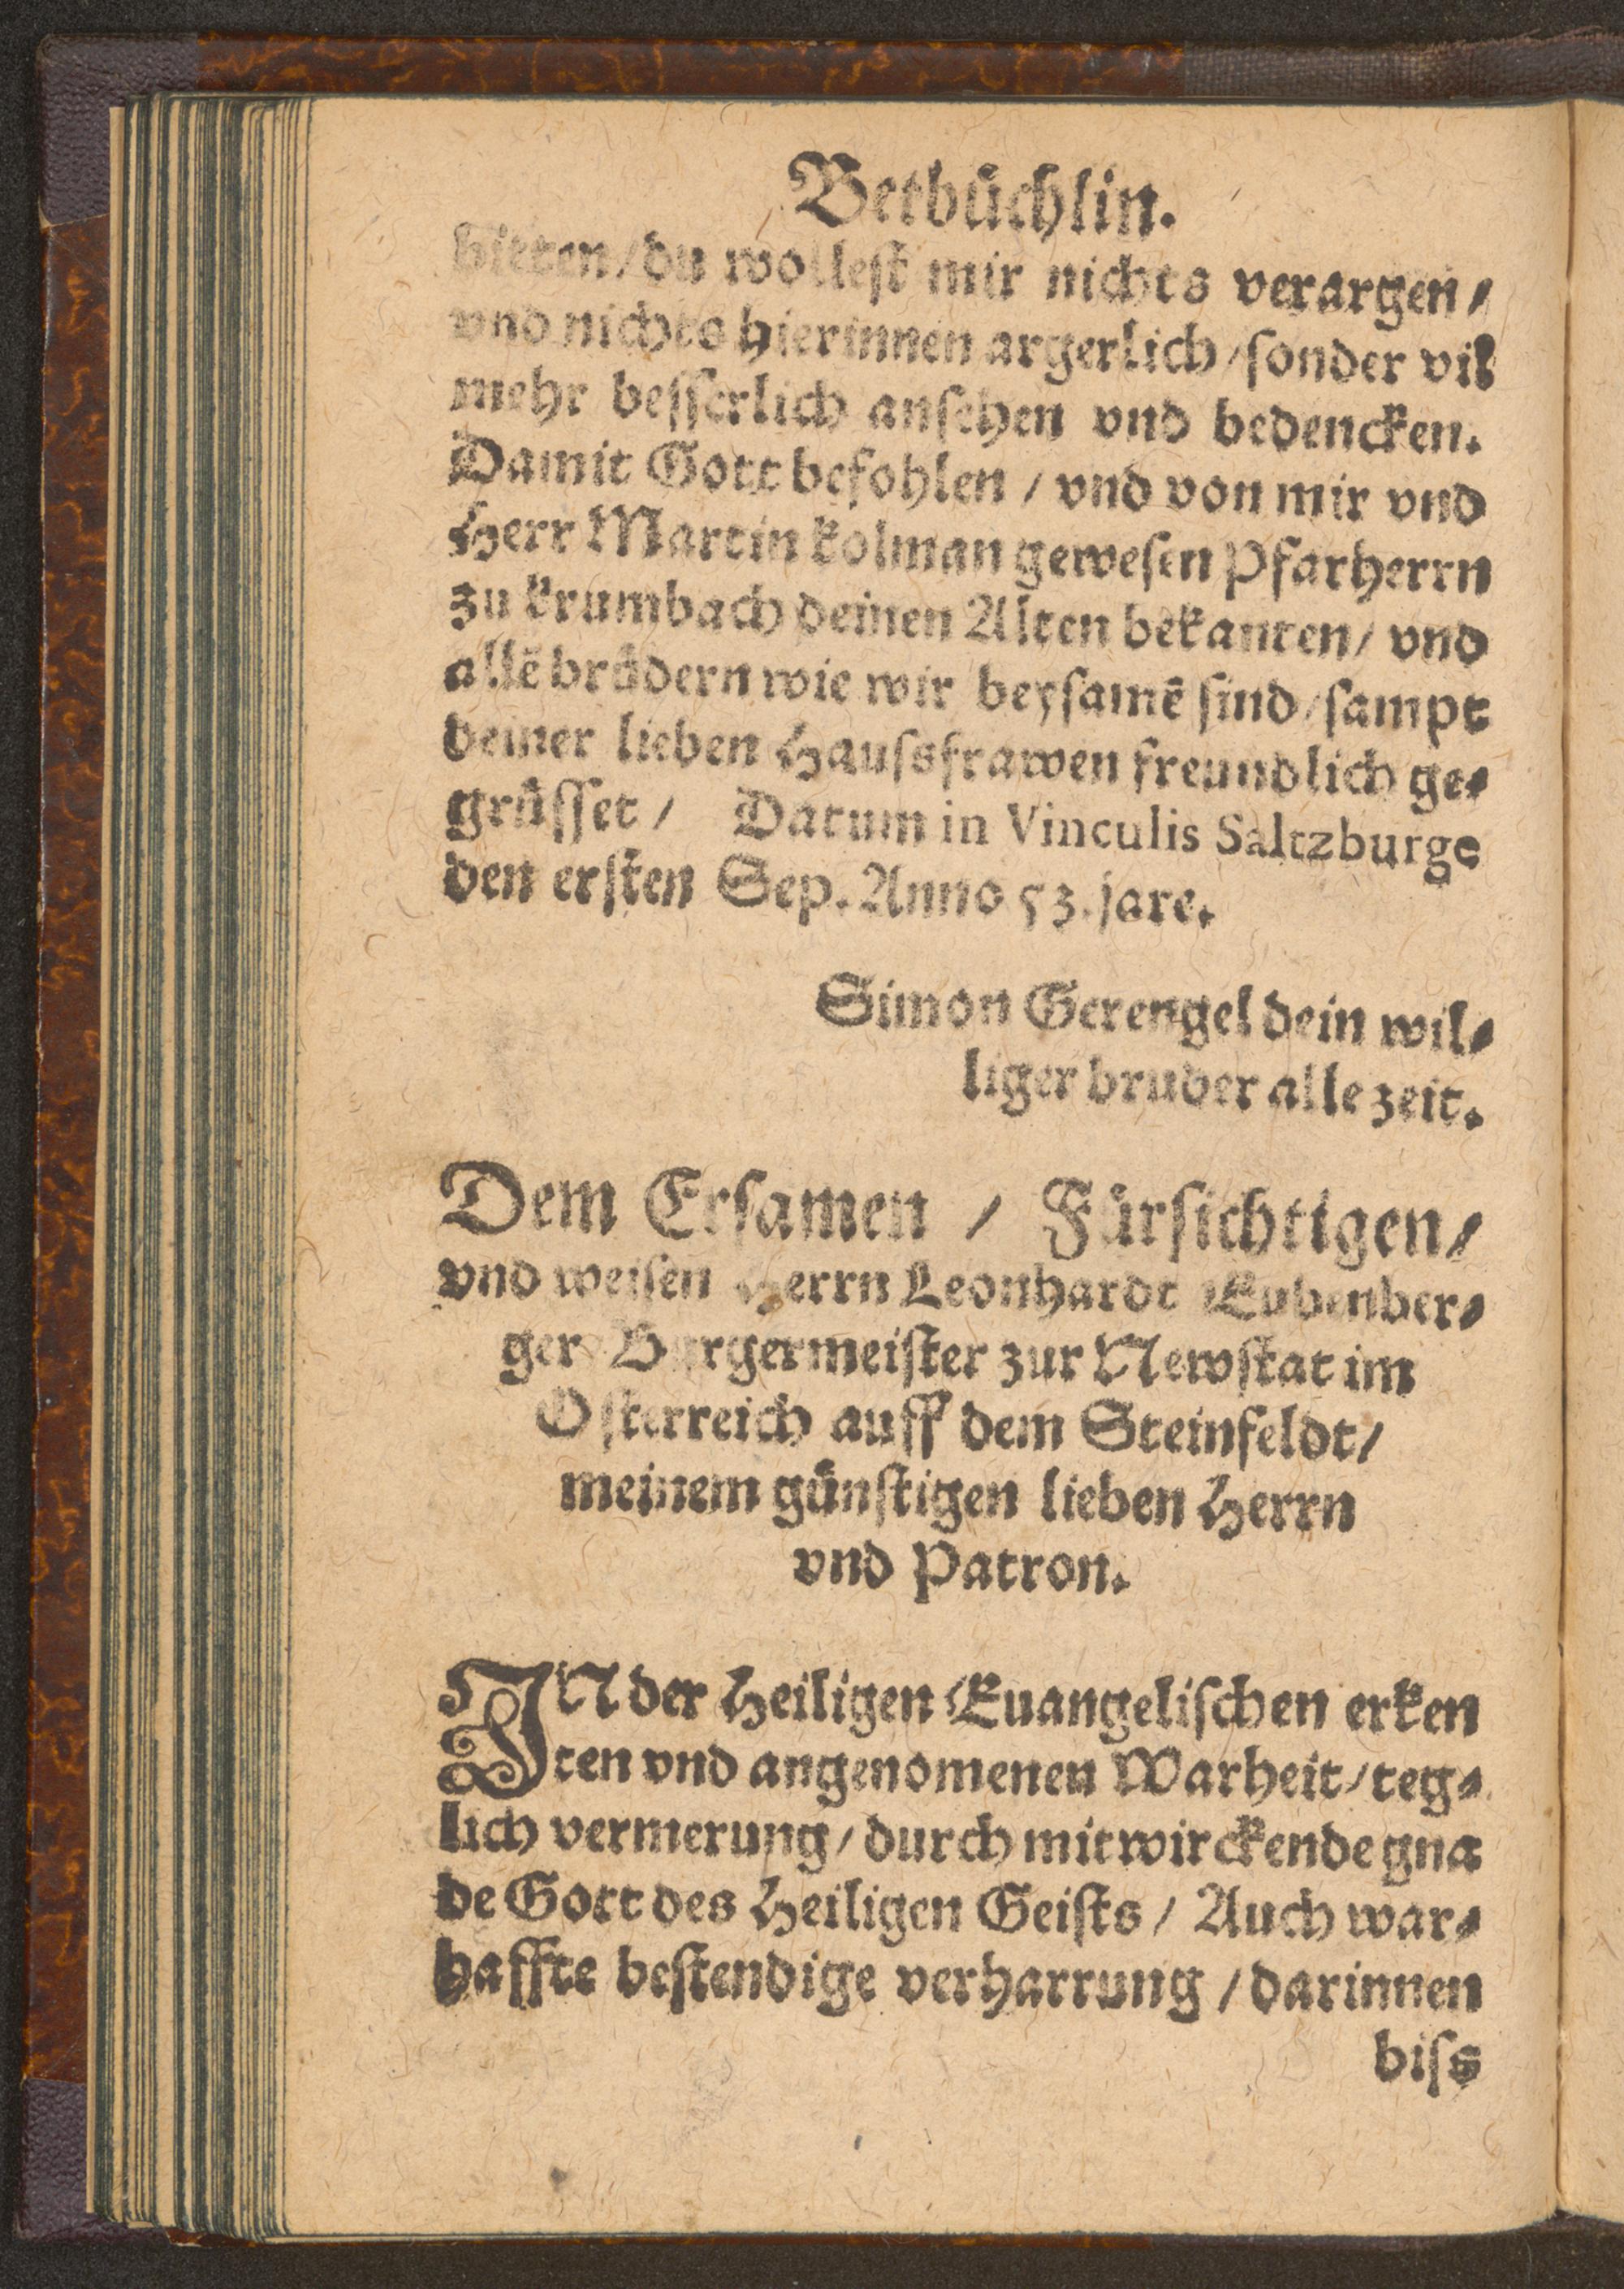 Betbuͤchlin.
bitten / du wolleſt mir nichts verargen /
vnd nichts hierinnen argerlich / ſonder vil
mehr beſſerlich anſehen vnd bedencken.
Damit Gott befohlen / vnd von mir vnd
Herr Martin kolman geweſen Pfarherrn
zu krumbach deinen Alten bekanten / vnd
allẽ bruͤdern wie wir beyſamẽ ſind / ſampt
deiner lieben Hauſsfrawen freundlich ge⸗
gruͤſſet / Datum in Vinculis Saltzburge
den erſten Sep. Anno 53. jare.
Simon Gerengel dein wil⸗
liger bruder alle zeit.
Dem Erſamen / Fuͤrſichtigen /
vnd weiſen Herrn Leonhardt Eubenber⸗
ger Burgermeiſter zur Newſtat im
Oſterreich auff dem Steinfeldt /
meinem guͤnſtigen lieben Herrn
vnd Patron.
IN der Heiligen Euangeliſchen erken
ten vnd angenomenen Warheit / teg⸗
lich vermerung / durch mitwirckende gna
de Gott des Heiligen Geiſts / Auch war⸗
haffte beſtendige verharrung / darinnen
biſs